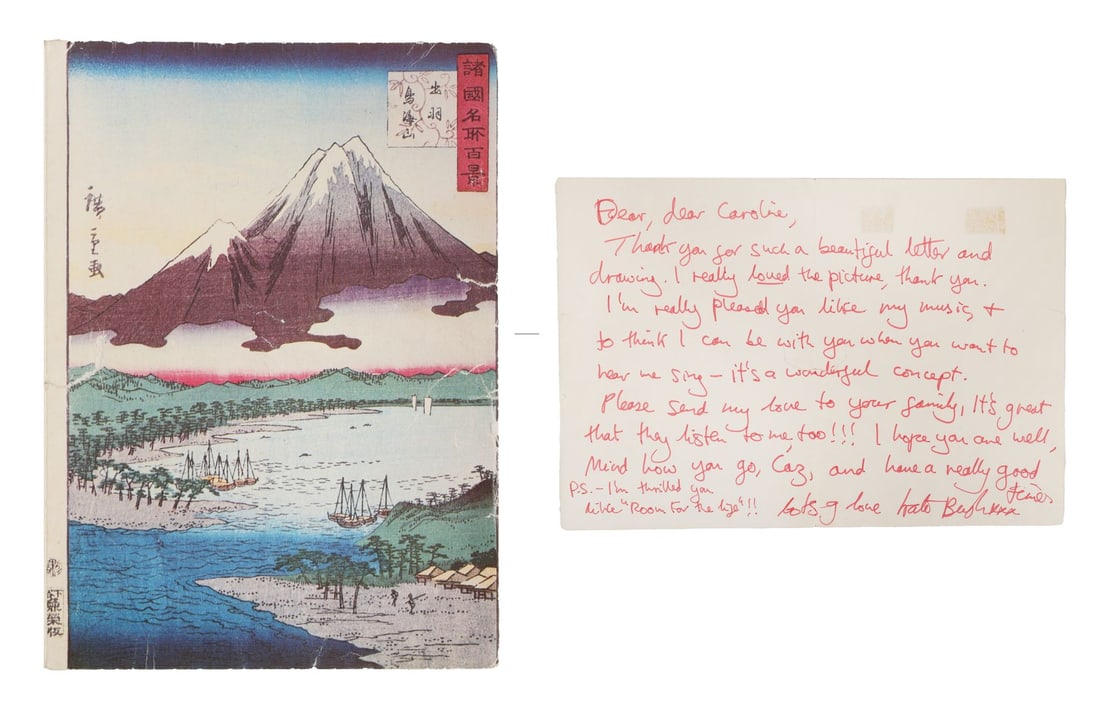 諸國名所百景
出羽
鳥海山
廣重画
Dear, dear Caroline,
Thank you for such a beautiful letter and
drawing. I really loved the picture, thank you.
I'm really pleased you like my music, +
to think I can be with you when you want to
hear me sing – it's a wonderful concept.
Please send my love to your family, It's great
that they listen to me, too!!! I hope you are well,
Mind how you go, Caz, and have a really good
times
P.S. – I'm thrilled you
like "Room For the life"!!
Lots of love Kate Bush xxx